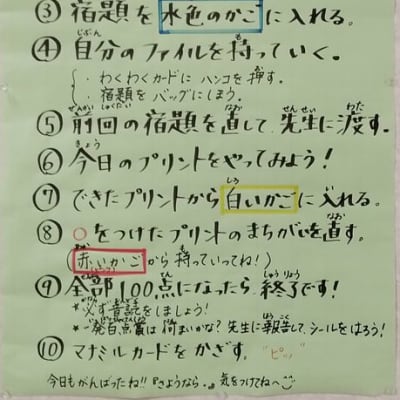 ③ 宿題を水色のかごに入れる。
④ 自分のファイルを持っていく。
・わくわくカードにハンコを押す。
・宿題をバッグにしまう。
⑤ 前回の宿題を直して、先生に渡す。
⑥ 今日のプリントをやってみよう!
⑦ できたプリントから白いかごに入れる。
⑧ ○をつけたプリントのまちがいを直す。
(赤いかごから持っていってね!)
⑨ 全部100点になったら、終了です!
★必ず音読をしましょう!
★一発百点賞は何まいかな?先生に報告して、シールをはろう!
⑩ マナミルカードをかざす。 "ピッ"
今日もがんばったね!!『さようなら。』気をつけてね〜